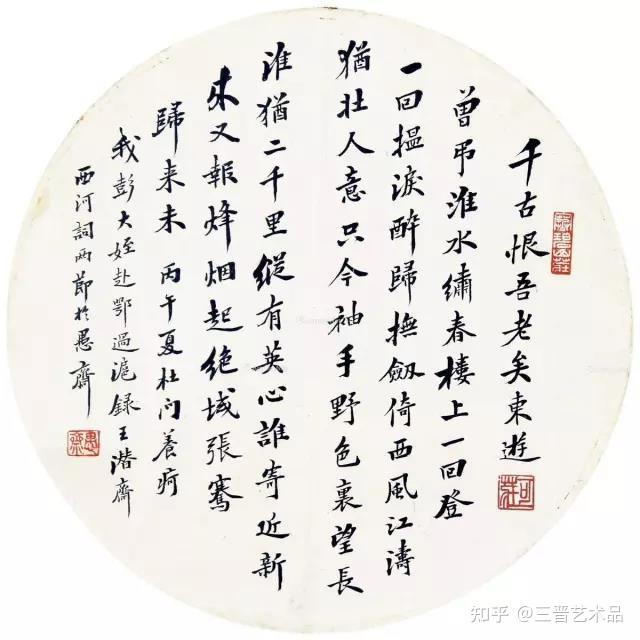 千古恨吾老矣東遊
曾弔淮水繡春樓上一回登
一回揾淚醉歸撫劔倚西風江濤
猶壮人意只今袖手野色裏望長
淮猶二千里縱有英心誰寄近新
來又報烽烟起絶域張騫
歸来未 丙午夏杜门養疴
我彭大姪赴鄂過滬録王潛齊
西河詞两節於愚齋
愚齋
知乎 @三晋艺术品